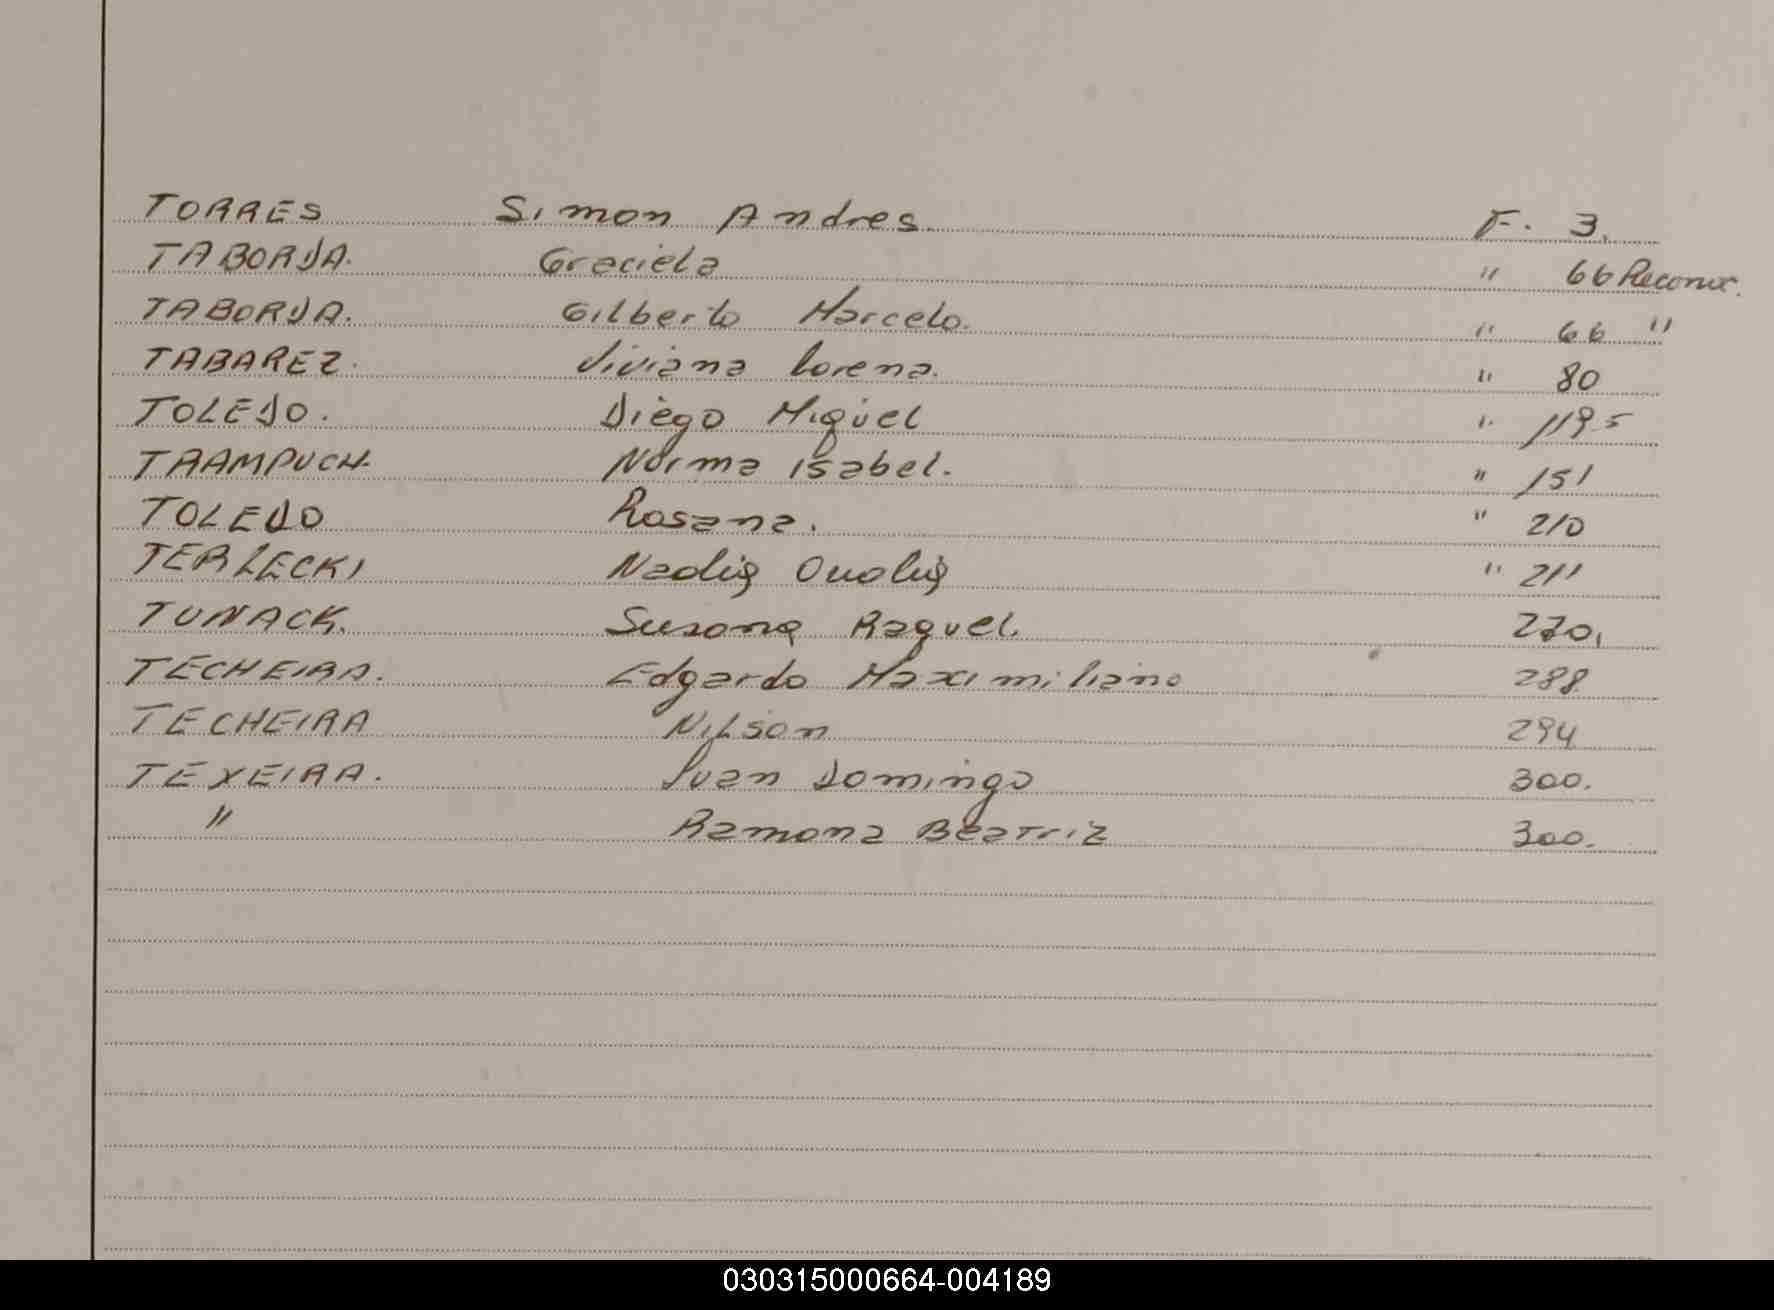 TORRES Simon Andres. F. 3.
TABORDA. Graciela " 66 Reconoc.
TABORDA. Gilberto Marcelo. " 66 "
TABAREZ. Viviana Lorena. " 80
TOLEDO. Diego Miguel "
TRAMPUCH. Norma Isabel. " 151
TOLEDO Rosana. " 210
TERLECKI Nadia " 211
TUNACK. Susana Raquel. 270.
TECHEIRA. Edgardo Maximiliano 288
TECHEIRA Nilson 294
TEXEIRA. Juan Domingo 300.
" Ramona Beatriz 300.
030315000664-004189